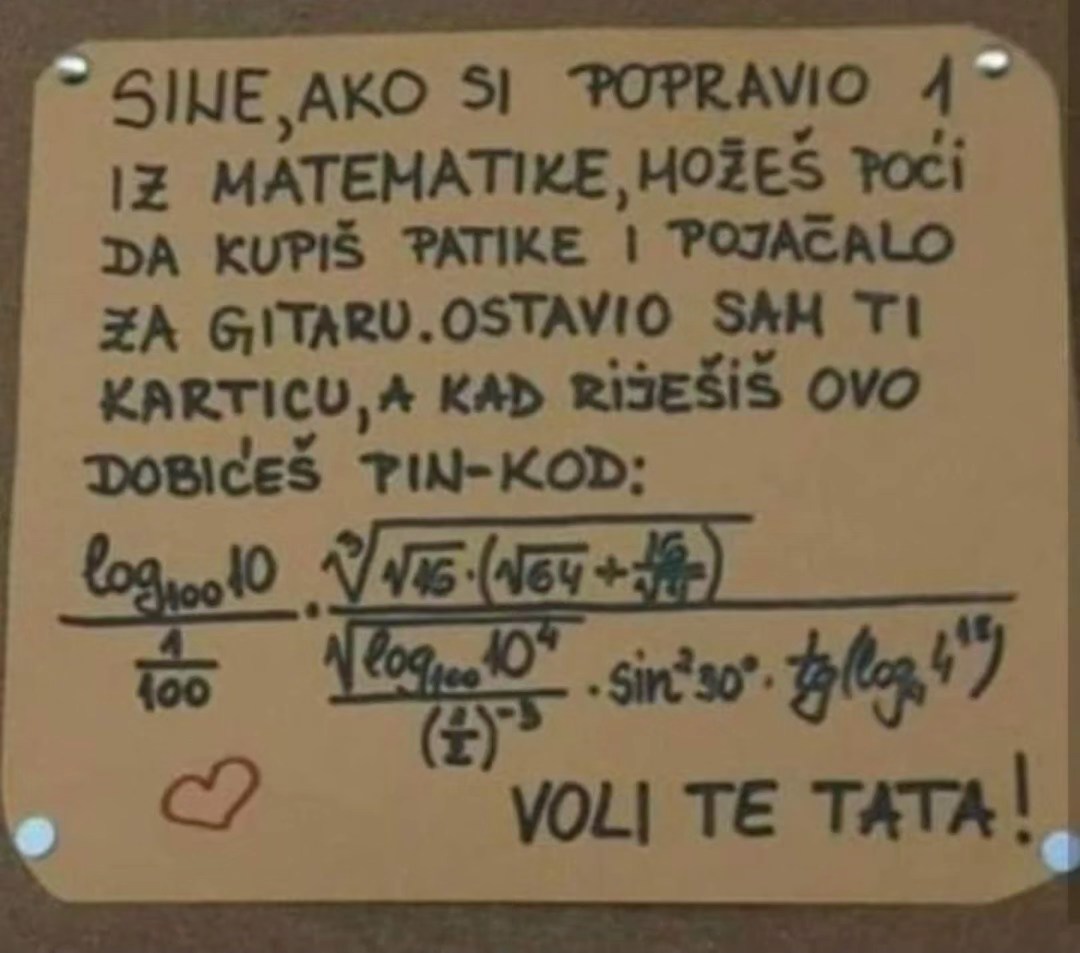 SINE, AKO SI POPRAVIO 1
IZ MATEMATIKE, MOŽEŠ POĆI
DA KUPIŠ PATIKE I POJAČALO
ZA GITARU. OSTAVIO SAM TI
KARTICU, A KAD RIJEŠIŠ OVO
DOBIĆEŠ PIN-KOD:
log₁₀₀10 ∛√16·(√64+
1 √log₁₀₀10⁴ · sin²30° · tg(log
100 (½)⁻³
VOLI TE TATA!